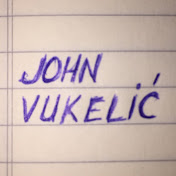 JOHN
VUKELIĆ